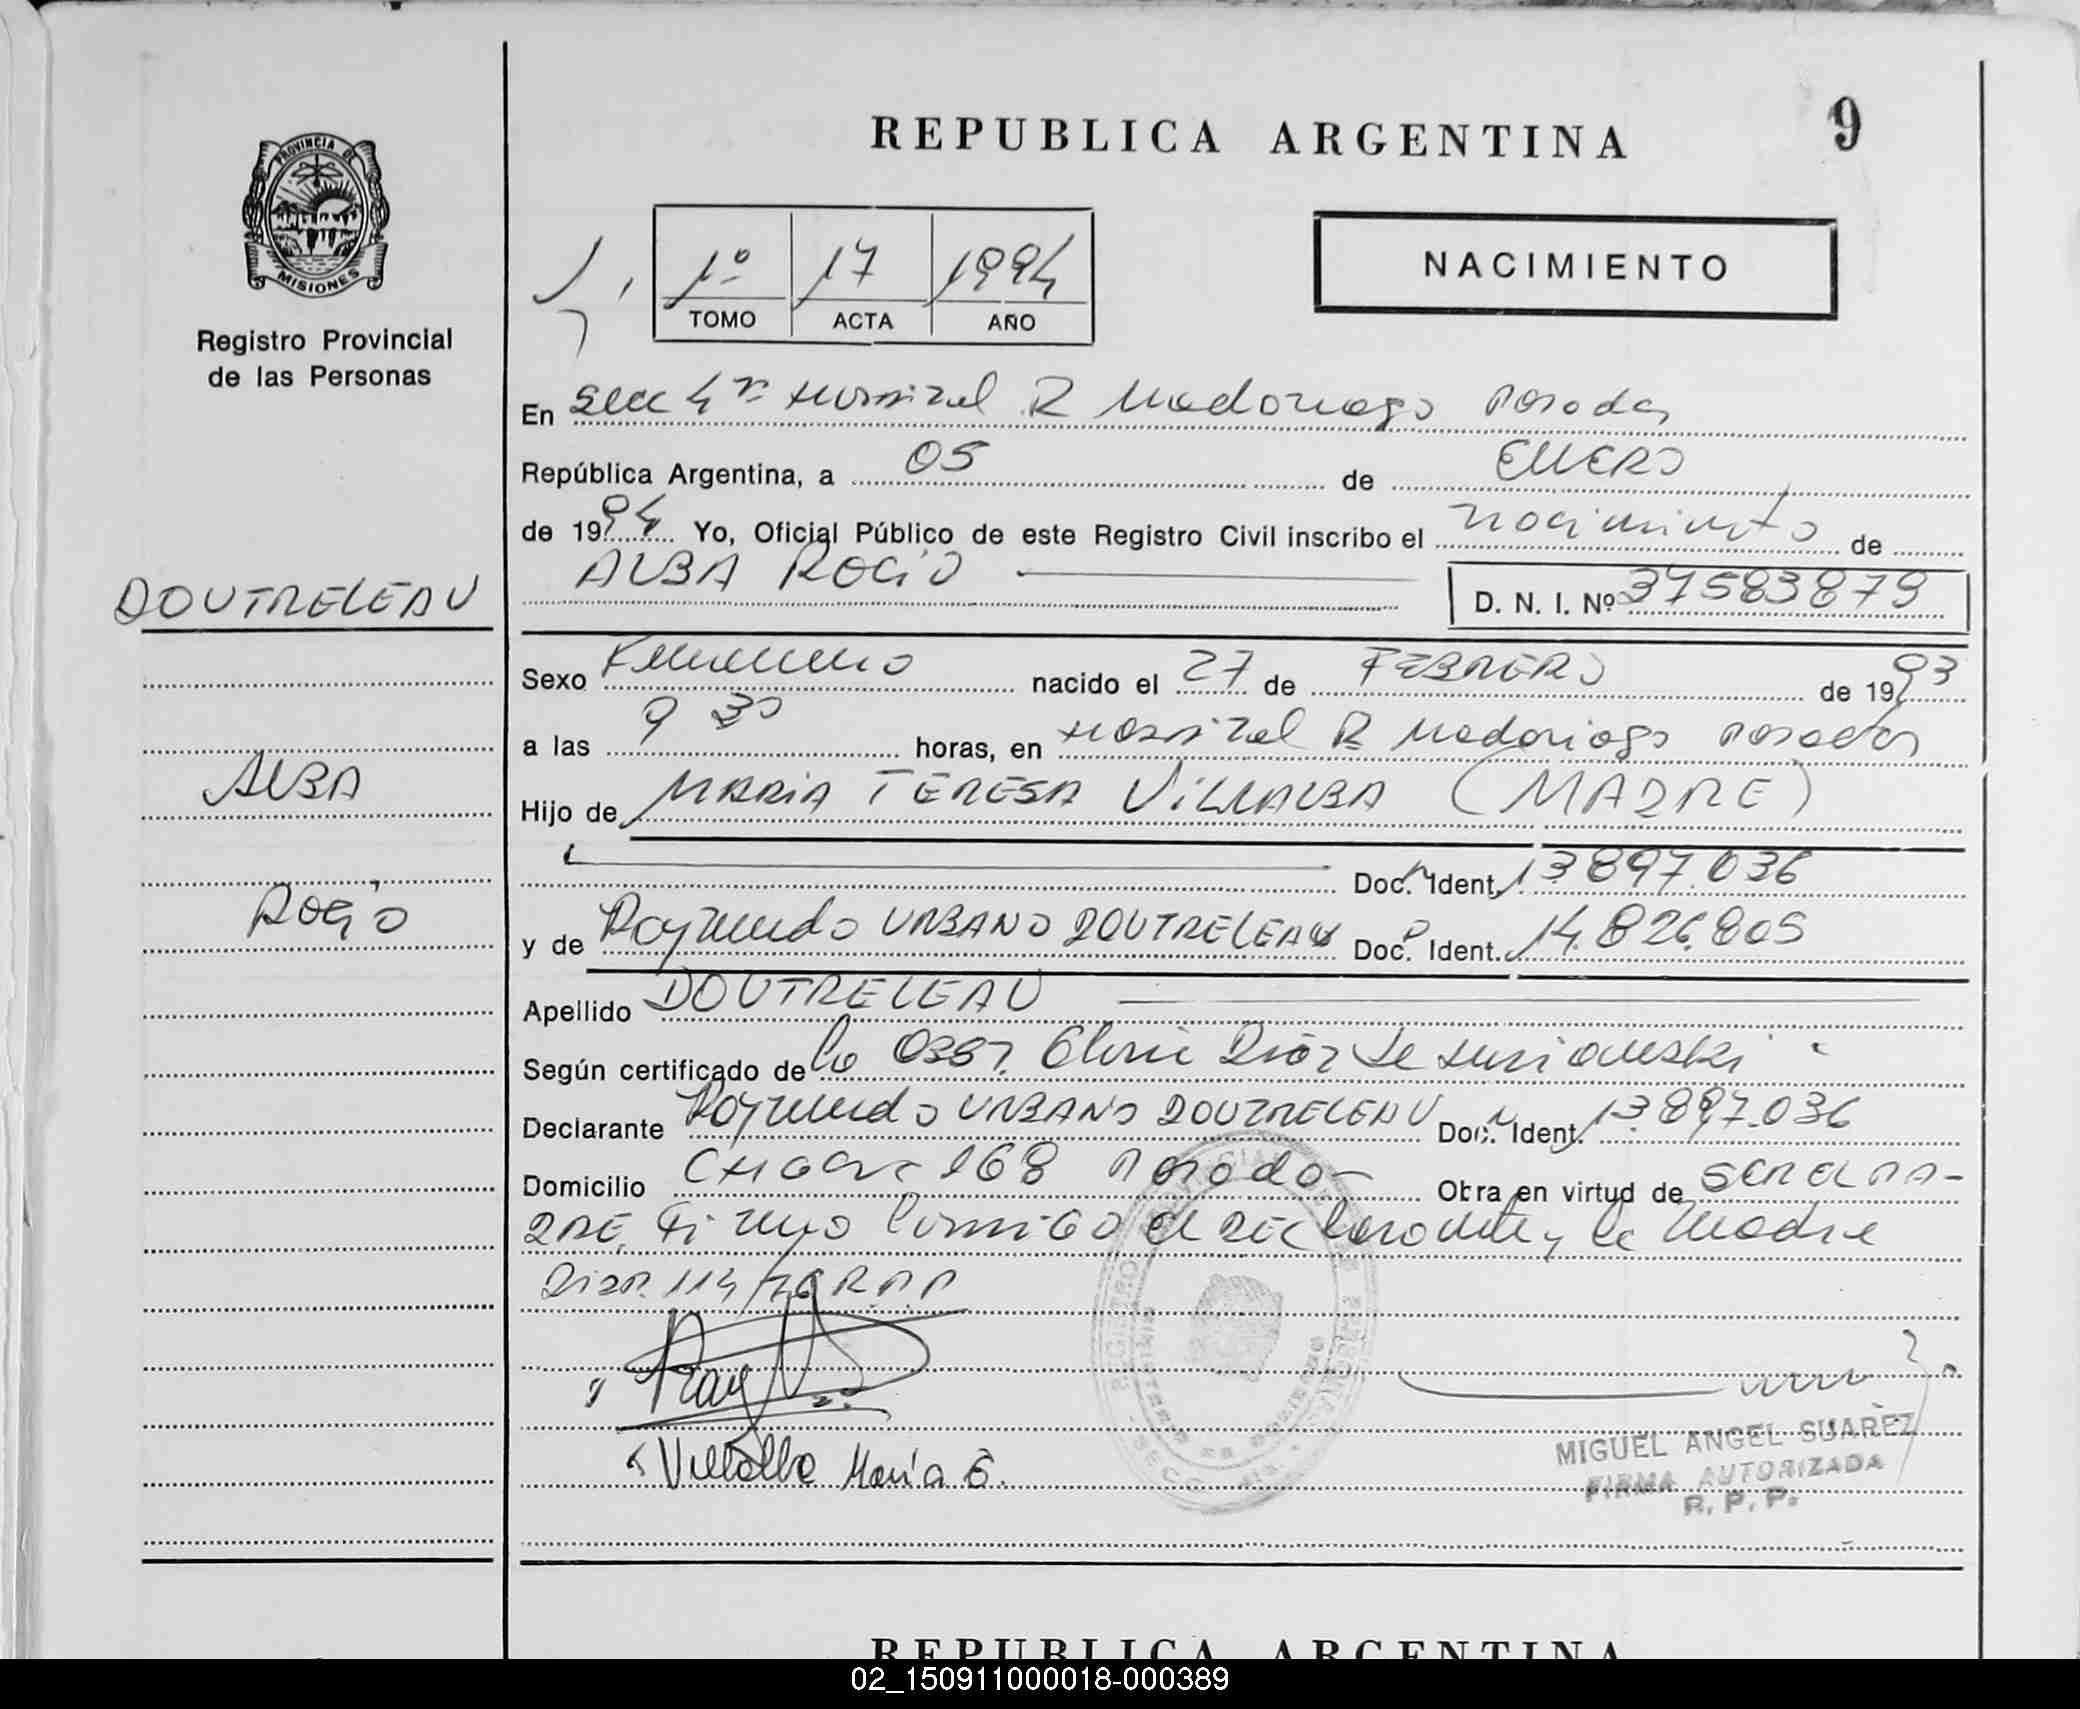 REPUBLICA ARGENTINA
9
PROVINCIA DE
MISIONES
Registro Provincial
de las Personas
1º 17 1994
TOMO ACTA AÑO
NACIMIENTO
En Secc 4ª Hospital R Madariaga Posadas
República Argentina, a 05 de ENERO
de 1994 Yo, Oficial Público de este Registro Civil inscribo el nacimiento de
ALBA ROCIO
D. N. I. Nº 37583879
DOUTRELEAU
ALBA
ROCIO
Sexo Femenino nacido el 27 de FEBRERO de 1993
a las 9 30 horas, en Hospital R Madariaga Posadas
Hijo de MARIA TERESA VILLALBA (MADRE)
Doc. Ident. 13.897.036
y de Raymundo URBANO DOUTRELEAU Doc. Ident. 14.826.805
Apellido DOUTRELEAU
Según certificado de la Obst.
Declarante Raymundo URBANO DOUTRELEAU Doc. Ident. 13.897.036
Domicilio 168 Posadas Obra en virtud de SER EL PA-
DRE. Firma conmigo el declarante y la Madre
Disp. 114/76 R.P.P
Villalba María
MIGUEL ANGEL SUAREZ
FIRMA AUTORIZADA
R. P. P.
REPUBLICA ARGENTINA
02_150911000018-000389